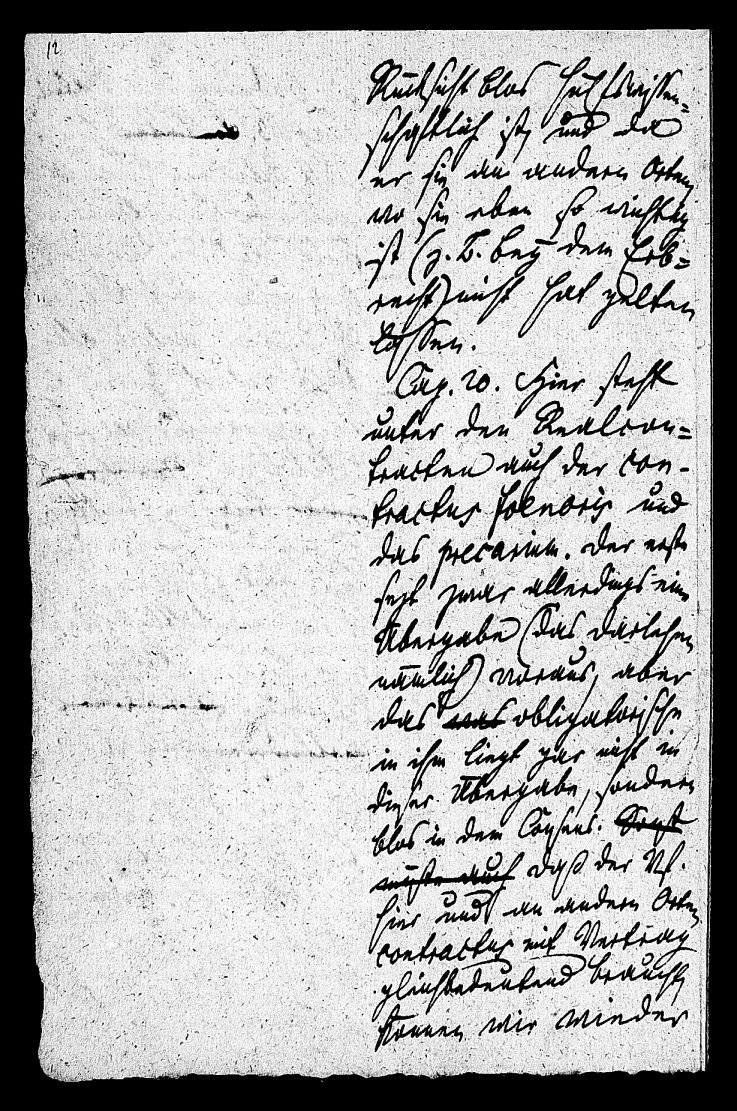 12
Rücksicht blos hülfswissen-
schaftlich ist, und da
er sie an andern Orten,
wo sie eben so wichtig
ist (z. B. bey dem Erb-
recht) nicht hat gelten
lassen.
Cap. 20. Hier steht
unter den Realcon-
tracten auch der con-
tractus foenoris und
das precarium. Der erste
sezt zwar allerdings eine
Übergabe (das Darlehen
nämlich) voraus, aber
das was obligatorische
in ihm liegt gar nicht in
dieser Übergabe, sondern
blos in dem Consens. Sonst
müste auch daß der Vf.
hier und an andern Orten
contractus mit Vertrag
gleichbedeutend braucht,
können wir wieder